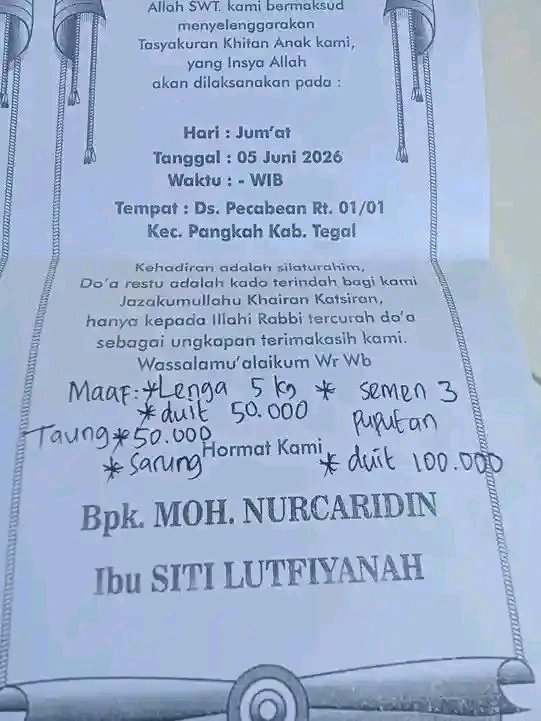 Allah SWT. kami bermaksud
menyelenggarakan
Tasyakuran Khitan Anak kami,
yang Insya Allah
akan dilaksanakan pada :
Hari : Jum'at
Tanggal : 05 Juni 2026
Waktu : - WIB
Tempat : Ds. Pecabean Rt. 01/01
Kec. Pangkah Kab. Tegal
Kehadiran adalah silaturahim,
Do'a restu adalah kado terindah bagi kami
Jazakumullahu Khairan Katsiran,
hanya kepada Illahi Rabbi tercurah do'a
sebagai ungkapan terimakasih kami.
Wassalamu'alaikum Wr Wb
Maaf: *Lenga 5 kg * semen 3
*duit 50.000 puputan
Taung *50.000
Hormat Kami
*Sarung * duit 100.000
Bpk. MOH. NURCARIDIN
Ibu SITI LUTFIYANAH